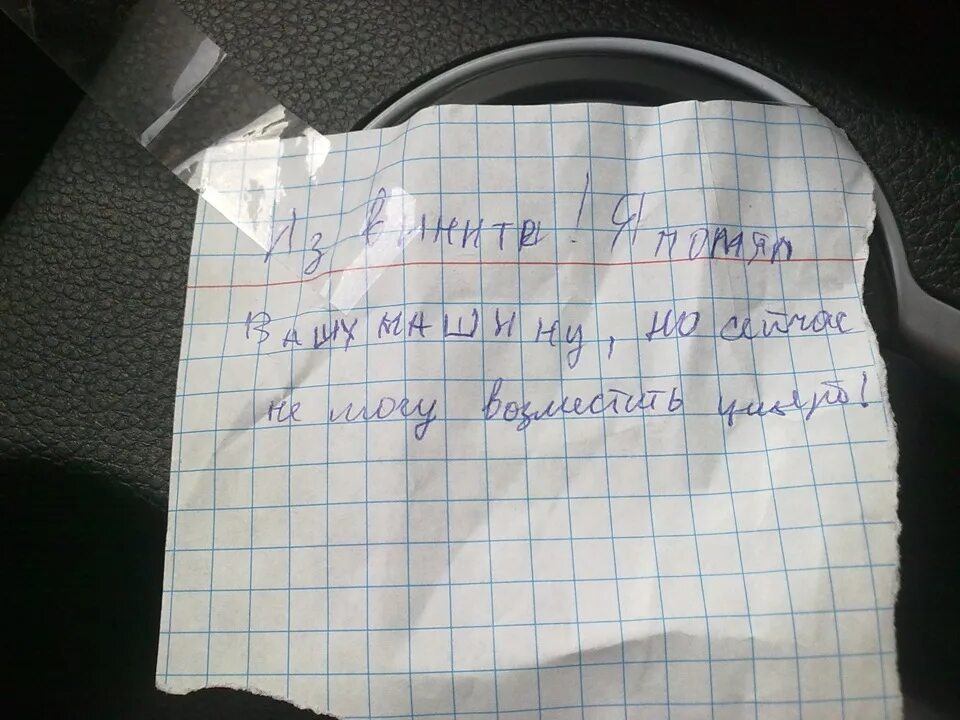 Из виннте! Я помял
Вашу машину, но сейчас
не могу возместить